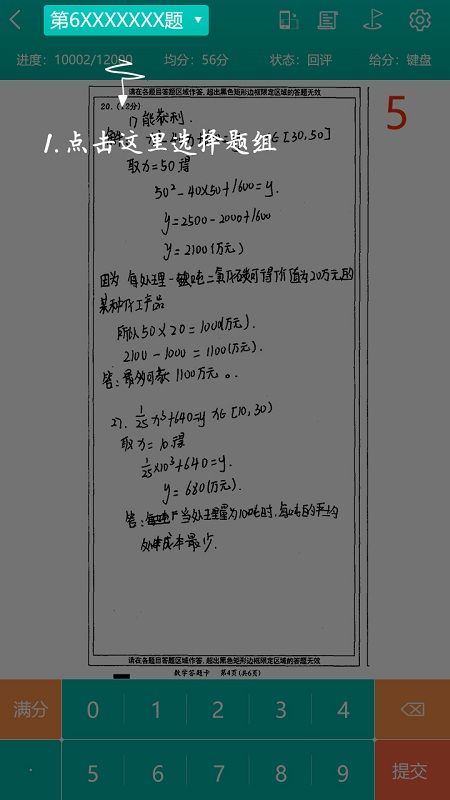 第6XXXXXXX题
进度：10002/12000 均分：56分 状态：回评 给分：键盘
请在各题目答题区域作答,超出黑色矩形边框限定区域的答题无效
20.(12分)
5
能获利.
∈[30,50]
1.点击这里选择题组
取x=50得
50²-40×50+1600=y.
y=2500-2000+1600
y=2100(万元)
因为 每处理一吨二氧化碳可得价值为20万元的
某种化工产品
所以50×20=1000(万元).
2100-1000=1100(万元).
答:最多可获1100万元。
2). 1/25 x³+640=y x∈[10,30)
取x=10得
1/25×10³+640=y.
y=680(万元).
答: 当处理量为10吨时,每吨的平均
处理成本最少.
请在各题目答题区域作答,超出黑色矩形边框限定区域的答题无效
数学答题卡 第4页(共6页)
满分 0 1 2 3 4
· 5 6 7 8 9 提交